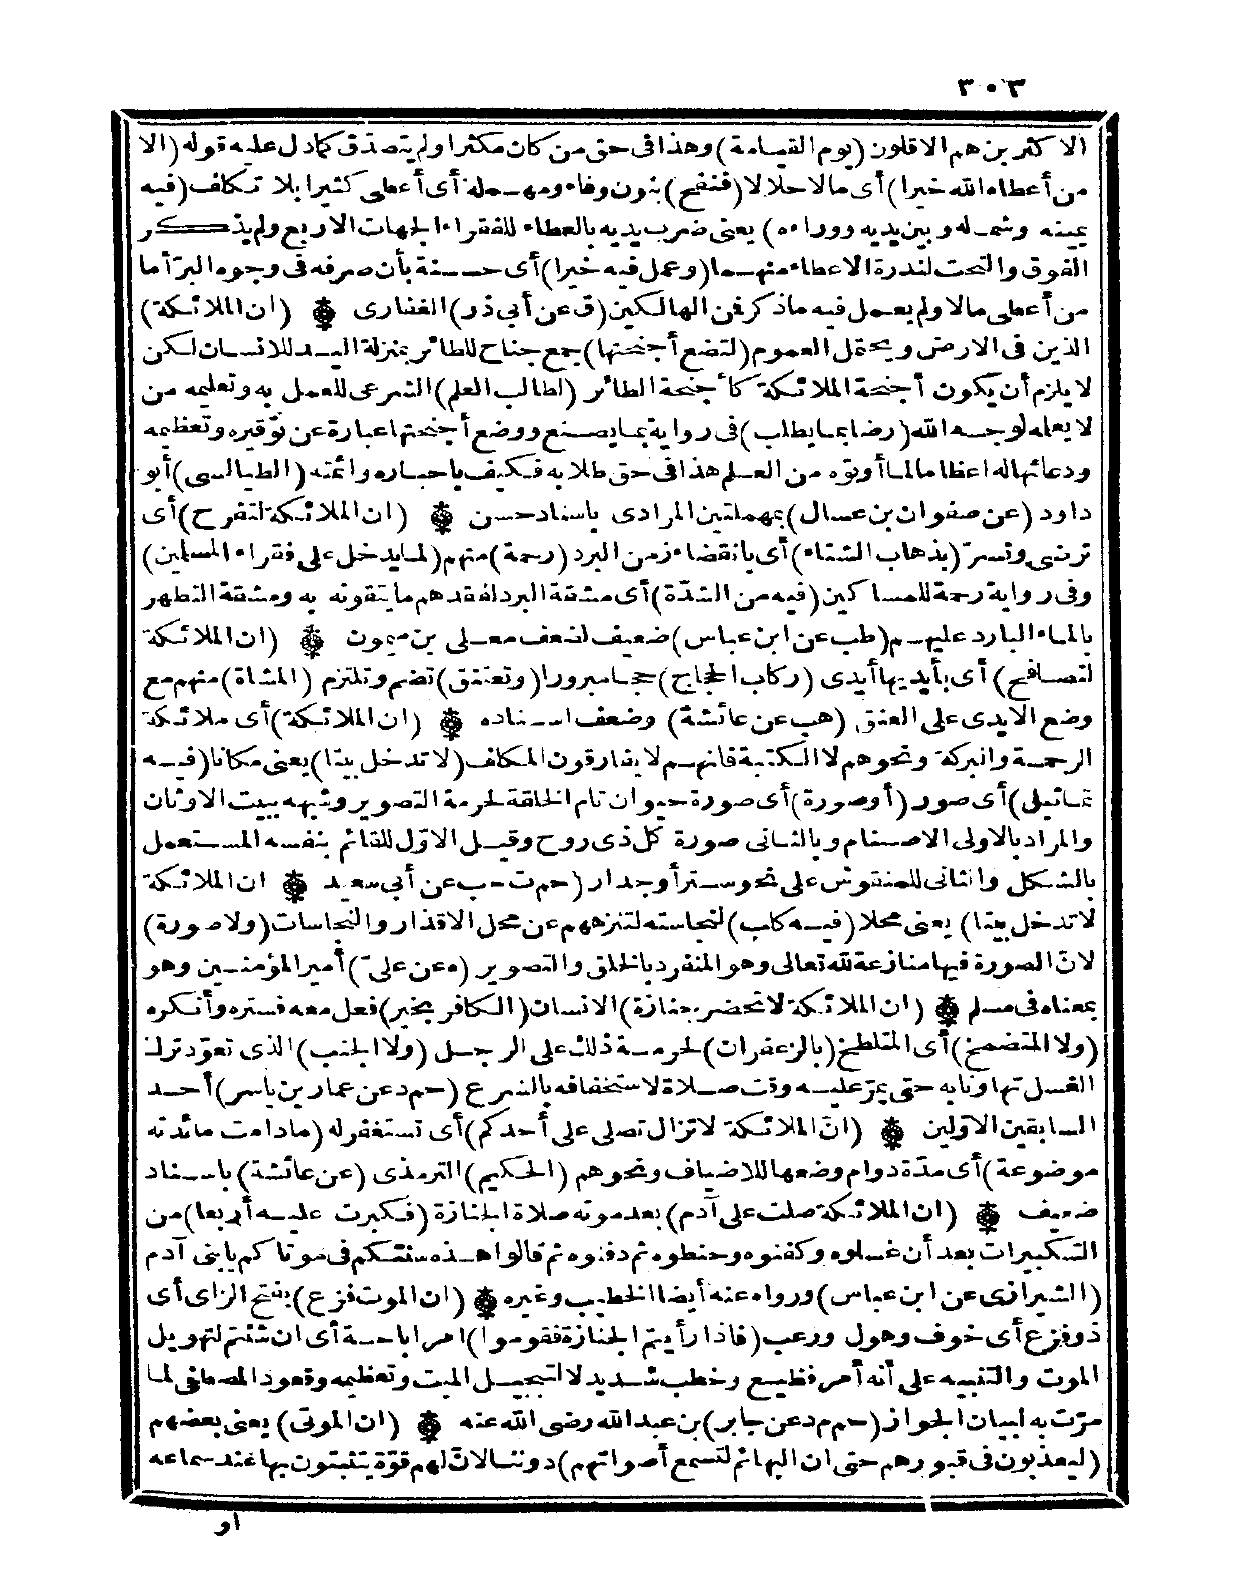 ٣٠٣
الاكثرين هم الاقلون (يوم القيامة) وهذا فى حق من كان مكثرا ولم يتصدق كمادل عليه قوله (الا
من أعطاه الله خيرا) أى مالا حلالا (فنفح) بنون وفاء ومهملة أى أعطى كثيرا بلا تكلف (فيه
يمينه وشماله وبين يديه ووراءه) يعنى ضرب يديه بالعطاء للفقراء الجهات الاربع ولم يذكر
الفوق والتحت لندرة الاعطاء منهما (وعمل فيه خيرا) أى حسنة بأن صرفه فى وجوه البرّ أما
من أعطى مالا ولم يعمل فيه ماذكر فمن الهالكين (ق عن أبي ذر) الغفارى ۞ (ان الملائكة)
الذين فى الارض ويحتمل العموم (لتضع أجنحتها) جمع جناح للطائر بمنزلة اليد للانسان لكن
لا يلزم أن يكون أجنحة الملائكة كأجنحة الطائر (لطالب العلم) الشرعى للعمل به وتعليمه من
لا يعلمه لوجه الله (رضا بما يطلب) فى رواية بما يصنع ووضع أجنحتها عبارة عن توقيره وتعظيمه
ودعائها له اعظاما لما أوتوه من العلم هذا فى حق طلابه فكيف باحباره وائمته (الطيالسى) أبو
داود (عن صفوان بن عسال) بمهملتين المرادى باسناد حسن ۞ (ان الملائكة لتفرح) أى
ترضى وتسرّ (بذهاب الشتاء) أى بانقضاء زمن البرد (رحمة) منهم (لما يدخل على فقراء المسلمين)
وفى رواية رحمة للمساكين (فيه من الشدّة) أى مشقة البرد لفقدهم ما يتقونه به ومشقة التطهر
بالماء البارد عليهم (طب عن ابن عباس) ضعيف لضعف معلى بن ميمون ۞ (ان الملائكة
لتصافح) أى بأيديها أيدى (ركاب الحجاج) حجا مبرورا (وتعتنق) تضم وتلتزم (المشاة) منهم مع
وضع الايدى على العنق (هب عن عائشة) وضعف اسناده ۞ (ان الملائكة) أى ملائكة
الرحمة والبركة ونحوهم لا الكتبة فانهم لا يفارقون المكلف (لا تدخل بيتا) يعنى مكانا (فيه
تماثيل) أى صور (أوصورة) أى صورة حيوان تام الخلقة لحرمة التصوير وشبهه ببيت الاوثان
والمراد بالاولى الاصنام وبالثانى صورة كل ذى روح وقيل الاوّل للقائم بنفسه المستعمل
بالشكل والثانى للمنقوش على نحو ستر أو جدار (حم ت حب عن أبي سعيد ۞ ان الملائكة
لا تدخل بيتا) يعنى محلا (فيه كلب) لنجاسته لتنزههم عن محل الاقذار والنجاسات (ولا صورة)
لانّ الصورة فيها منازعة لله تعالى وهو المنفرد بالخلق والتصوير (ه عن علىّ) أمير المؤمنين وهو
بمعناه فى مسلم ۞ (ان الملائكة لا تحضر جنازة) الانسان (الكافر بخير) فعل معه فستره وأنكره
(ولا المتضمخ) أى المتلطخ (بالزعفران) لحرمة ذلك على الرجل (ولا الجنب) الذى تعوّد ترك
الغسل تهاونا به حتى يمرّ عليه وقت صلاة لاستخفافه بالشرع (حم د عن عمار بن ياسر) أحد
السابقين الاوّلين ۞ (انّ الملائكة لا تزال تصلى على أحدكم) أى تستغفر له (مادامت مائدته
موضوعة) أى مدّة دوام وضعها للاضياف ونحوهم (الحكيم) الترمذى (عن عائشة) باسناد
ضعيف ۞ (ان الملائكة صلت على آدم) بعد موته صلاة الجنازة (فكبرت عليه أربعا) من
التكبيرات بعد أن غسلوه وكفنوه وحنطوه ثم دفنوه ثم قالوا هذه سنتكم فى موتاكم يابنى آدم
(الشيرازى عن ابن عباس) ورواه عنه أيضا الخطيب وغيره ۞ (ان الموت فزع) بفتح الزاى أى
ذو فزع أى خوف وهول ورعب (فاذا رأيتم الجنازة فقوموا) امر اباحة أى ان شئتم لتهويل
الموت والتنبيه على أنه أمر فظيع وخطب شديد لا لتبجيل الميت وتعظيمه وقعود المصطفى لما
مرّت به لبيان الجواز (حم م د عن جابر) بن عبد الله رضى الله عنه ۞ (ان الموتى) يعنى بعضهم
(ليعذبون فى قبورهم حتى ان البهائم لتسمع أصواتهم) دوننا لانّ لهم قوّة يثبتون بها عند سماعه
او